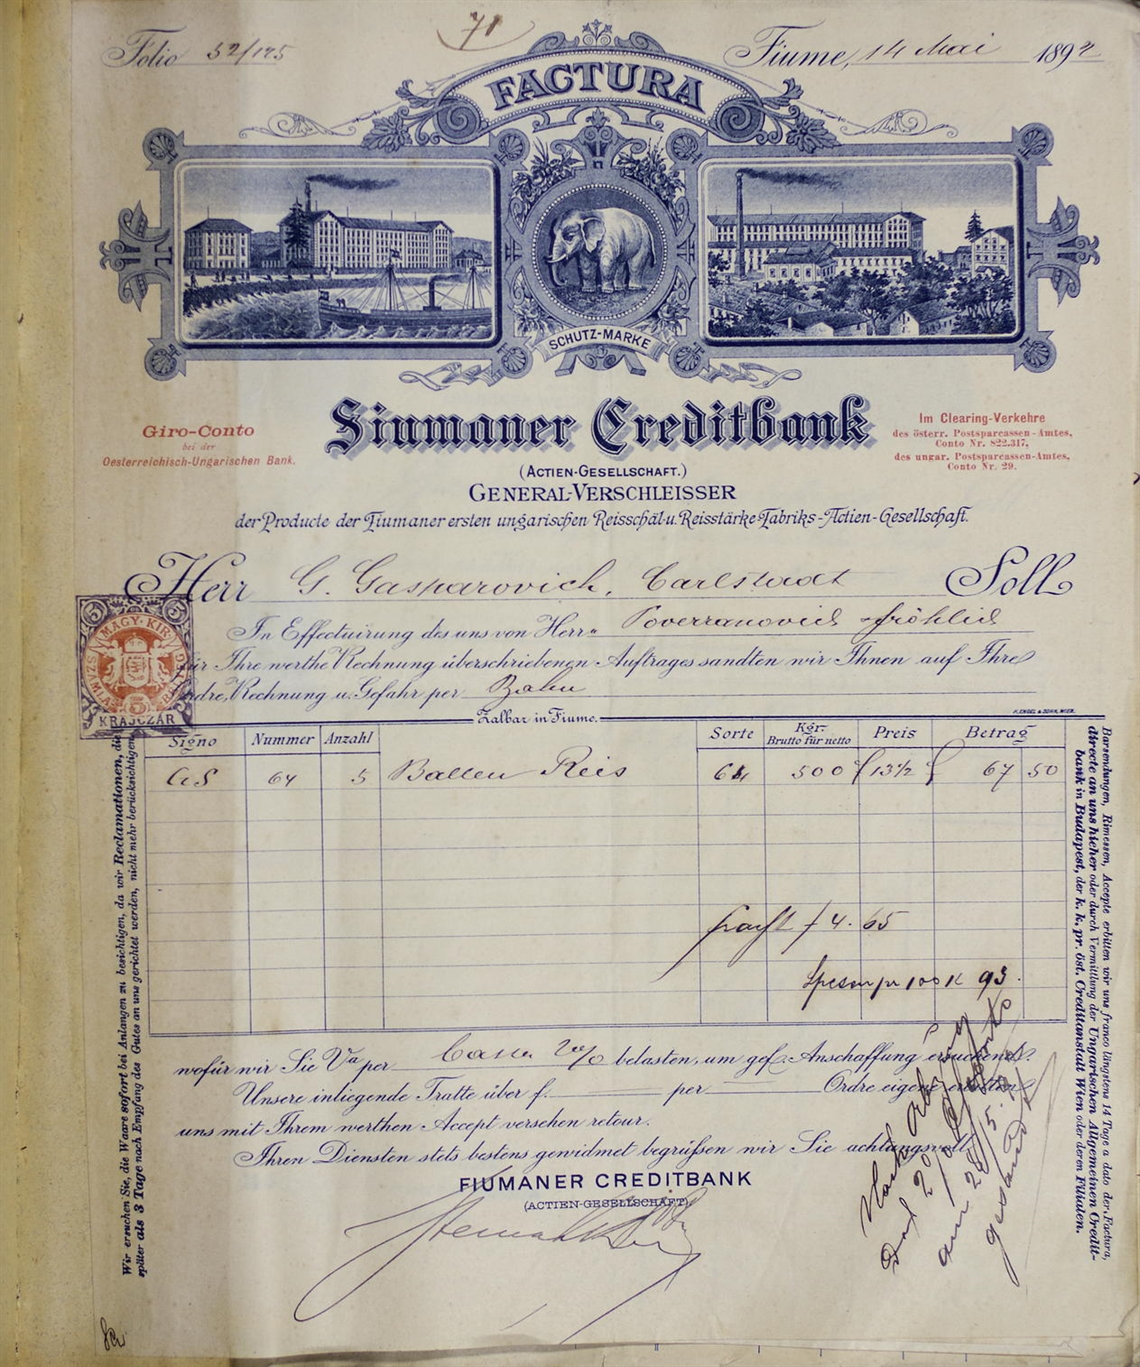 71
Folio 52/175
Fiume, 14 Mai 1892
FACTURA
SCHUTZ-MARKE
Giro-Conto
bei der
Oesterreichisch-Ungarischen Bank.
Fiumaner Creditbank
(ACTIEN-GESELLSCHAFT.)
GENERAL-VERSCHLEISSER
der Producte der Fiumaner ersten ungarischen Reisschäl-u. Reisstärke-Fabriks-Actien-Gesellschaft.
Im Clearing-Verkehre
des österr. Postsparcassen-Amtes,
Conto Nr. 822.317,
des ungar. Postsparcassen-Amtes,
Conto Nr. 29.
Herr G. Gasparovich, Carlstadt Soll
In Effectuirung des uns von Herrn Poverzanovich Fröhlich
für Ihre werthe Rechnung überschriebenen Auftrages sandten wir Ihnen auf Ihre
Ordre, Rechnung u. Gefahr per Bahn
5 MAGY. KIR.
5
KRAJCZÁR
Zalbar in Fiume.
Signo Nummer Anzahl Sorte Kgr. Brutto für netto Preis Betrag
GS 64 5 Ballen Reis 500 13½ 67 50
fracht f 4.65
Spesen pr 100 K 93.
wofür wir Sie Va per Cassa 2% belasten, um gef. Anschaffung ersuchend.
Unsere inliegende Tratte über f. per Ordre eigene erbitten
uns mit Ihrem werthen Accept versehen retour.
Ihren Diensten stets bestens gewidmet begrüßen wir Sie achtungsvoll
FIUMANER CREDITBANK
(ACTIEN-GESELLSCHAFT)
Nach Abzug
2%
am 28/5.
gesandt
Wir ersuchen Sie, die Waare sofort bei Anlangen zu besichtigen, da wir Reclamationen, die
später als 3 Tage nach Empfang des Gutes an uns gerichtet werden, nicht mehr berücksichtigen
Barsendungen, Rimessen, Accepte erbitten wir uns franco längstens 14 Tage a dato der Factura,
directe an uns hieher oder durch Vermittlung der Ungarischen Allgemeinen Credit-
bank in Budapest, der k. k. pr. öst. Creditanstalt Wien oder deren Filialen.